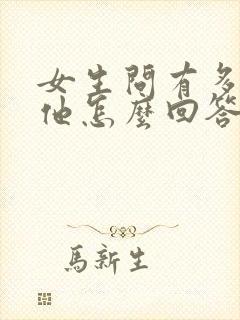 女生問有多
他怎麼回答
馬新生